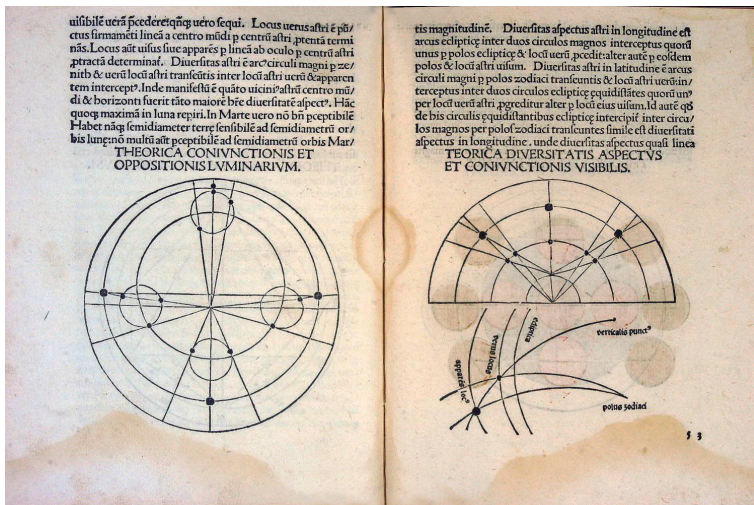 uisibilē uerā p̄cedere:qñq; uero sequi. Locus uerus astri ē pū/
ctus firmamēti lineā a centro mūdi p centrū astri ,ptentā termi
nās. Locus aūt uisus siue apparēs p lineā ab oculo p centrū astri
,ptractā determinaf. Diuersitas astri ē arcꝰ circuli magni p ze/
nith & uerū locū astri transeūtis inter locū astri uerū & apparen
tem interceptꝰ. Inde manifestū ē quāto uiciniꝰ astrū centro mū/
di & horizonti fuerit tāto maiorē hr̄e diuersitatē aspectꝰ. Hāc
quoq; maximā in luna repiri. In Marte uero nō bñ pceptibilē
Habet nāq; semidiameter terrę sensibilē ad semidiametrū or/
bis lunę: nō multū aūt pceptibilē ad semidiametrū orbis Mar/
THEORICA CONIVNCTIONIS ET
OPPOSITIONIS LVMINARIVM.
tis magnitudinē. Diuersitas aspectus astri in longitudine est
arcus eclipticę inter duos circulos magnos interceptus quorū
unus p polos zodiaci & locū uerū ,pcedit: alter autē p eosdem
polos & locū astri uisum. Diuersitas astri in latitudine ē arcus
circuli magni p polos zodiaci transeuntis & locū astri uerū: in/
terceptus inter duos circulos eclipticę ęquidistātes quorū unꝰ
per locū uerū astri ,pgreditur alter p locū eius uisum. Id autē qđ
de bis circulis ęquidistantibus eclipticę intercipit̄ inter circu/
los magnos per polos zodiaci transeuntes simile est diuersitati
aspectus in longitudine, unde diuersitas aspectus quasi linea
TEORICA DIVERSITATIS ASPECTVS
ET CONIVNCTIONIS VISIBILIS.
ecliptica
verus locus
apparēs locꝰ
verticalis punctꝰ
polus zodiaci
53